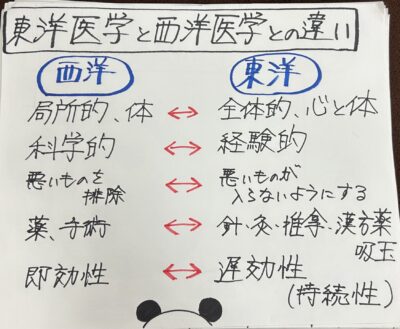 東洋医学と西洋医学との違い
西洋 東洋
局所的、体 ↔ 全体的、心と体
科学的 ↔ 経験的
悪いものを ↔ 悪いものが
排除 入らないようにする
薬、手術 ↔ 針・灸・推拿・漢方薬
吸玉
即効性 ↔ 遅効性
(持続性)